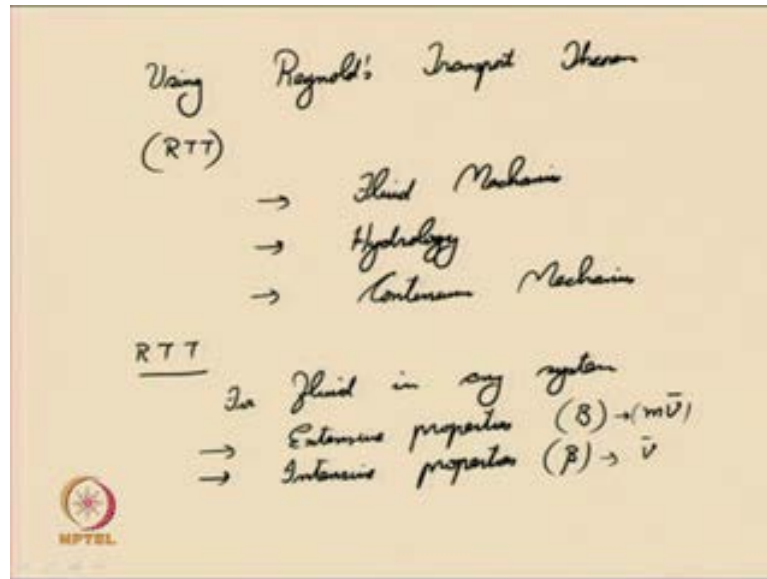 Using Reynold's Transport Theorem
(RTT)
→ Fluid Mechanics
→ Hydrology
→ Continuum Mechanics
RTT
For fluid in any system
→ Extensive properties (B) → (mv̄)
→ Intensive properties (β) → v̄
NPTEL